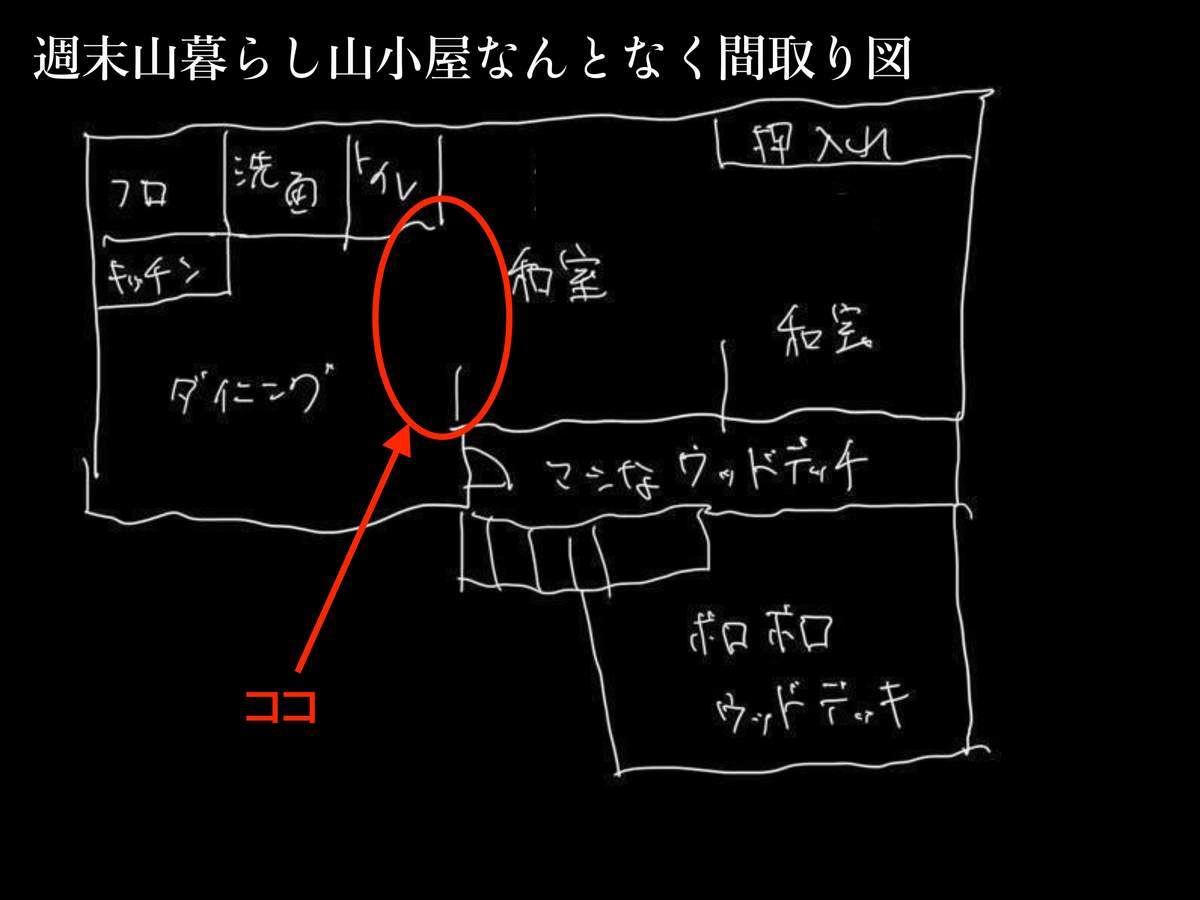 週末山暮らし山小屋なんとなく間取り図
押入れ
フロ
洗面
トイレ
キッチン
和室
和室
ダイニング
マシなウッドデッキ
ボロボロ
ウッドデッキ
ココ